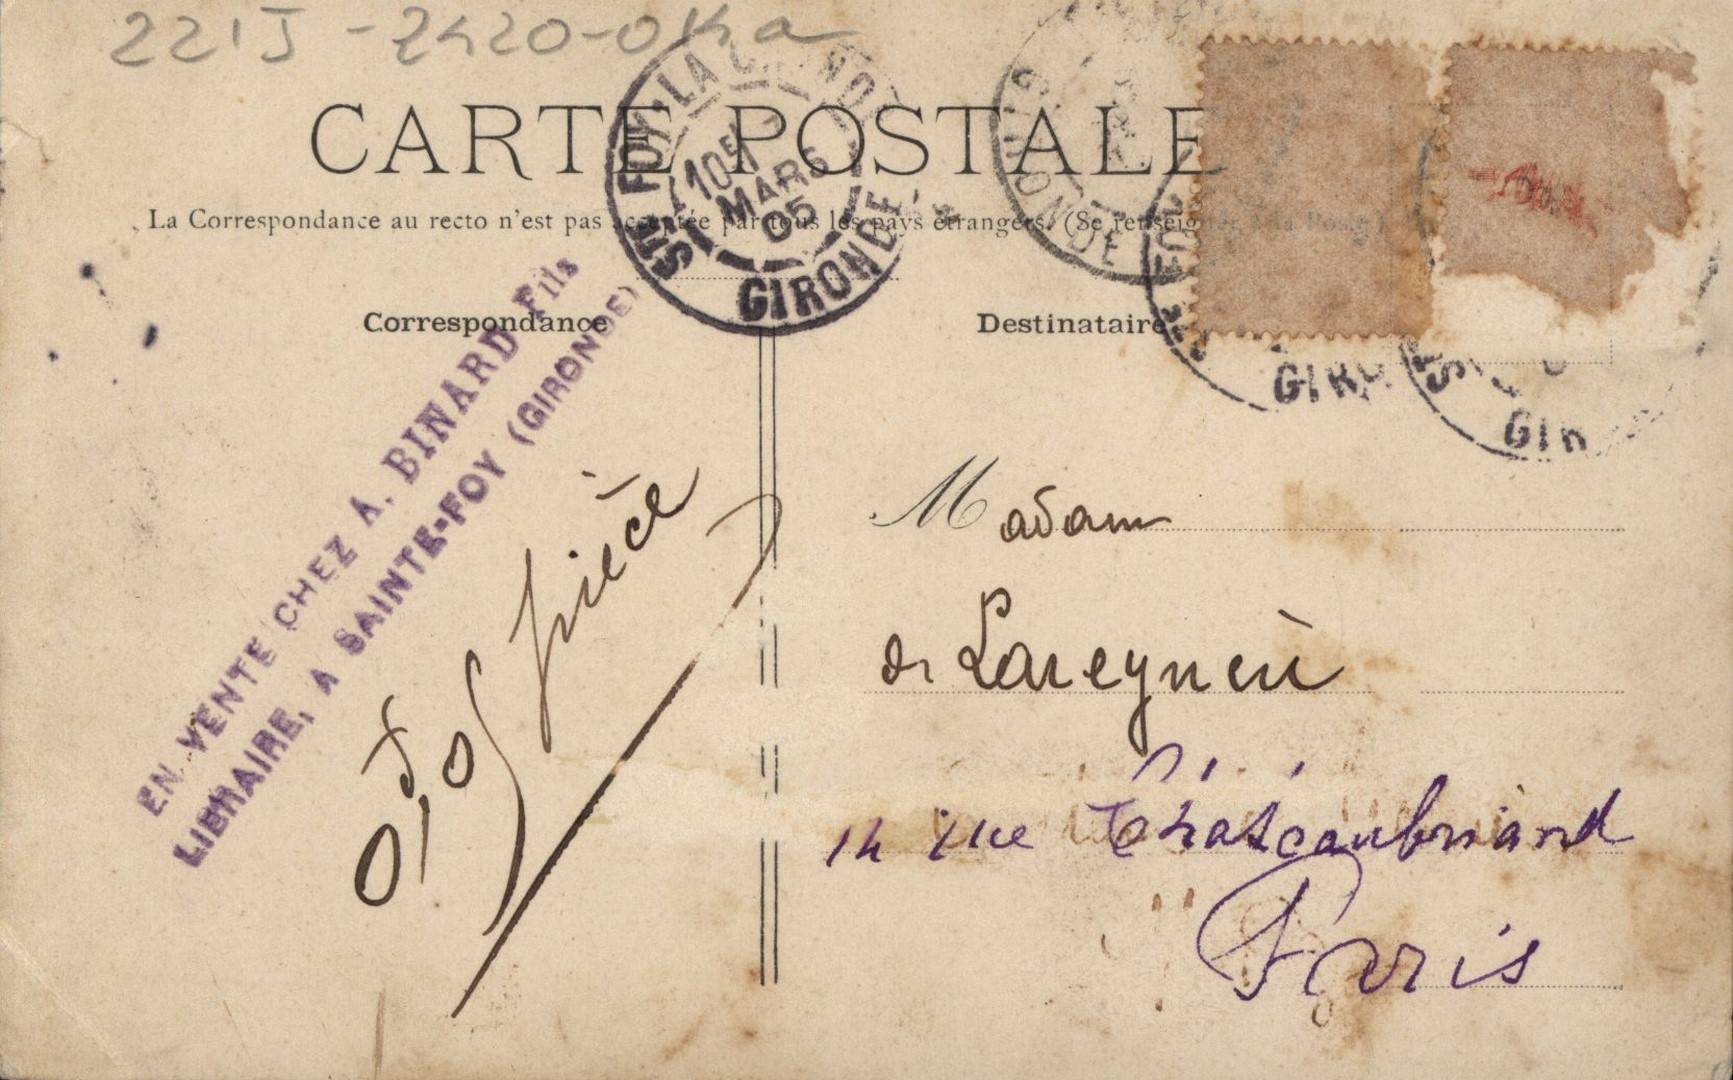 CARTE POSTALE
La Correspondance au recto n'est pas acceptée par tous les pays étrangers. (Se renseigner à la Poste)
Correspondance
Destinataire
STE FOY-LA-GRANDE
MARS
05
GIRONDE
GIRONDE
EN VENTE CHEZ A. BINARD Fils
LIBRAIRE, A SAINTE-FOY (GIRONDE)
pièce
Madame
de Lareyneri
14 rue Chateaubriand
Paris